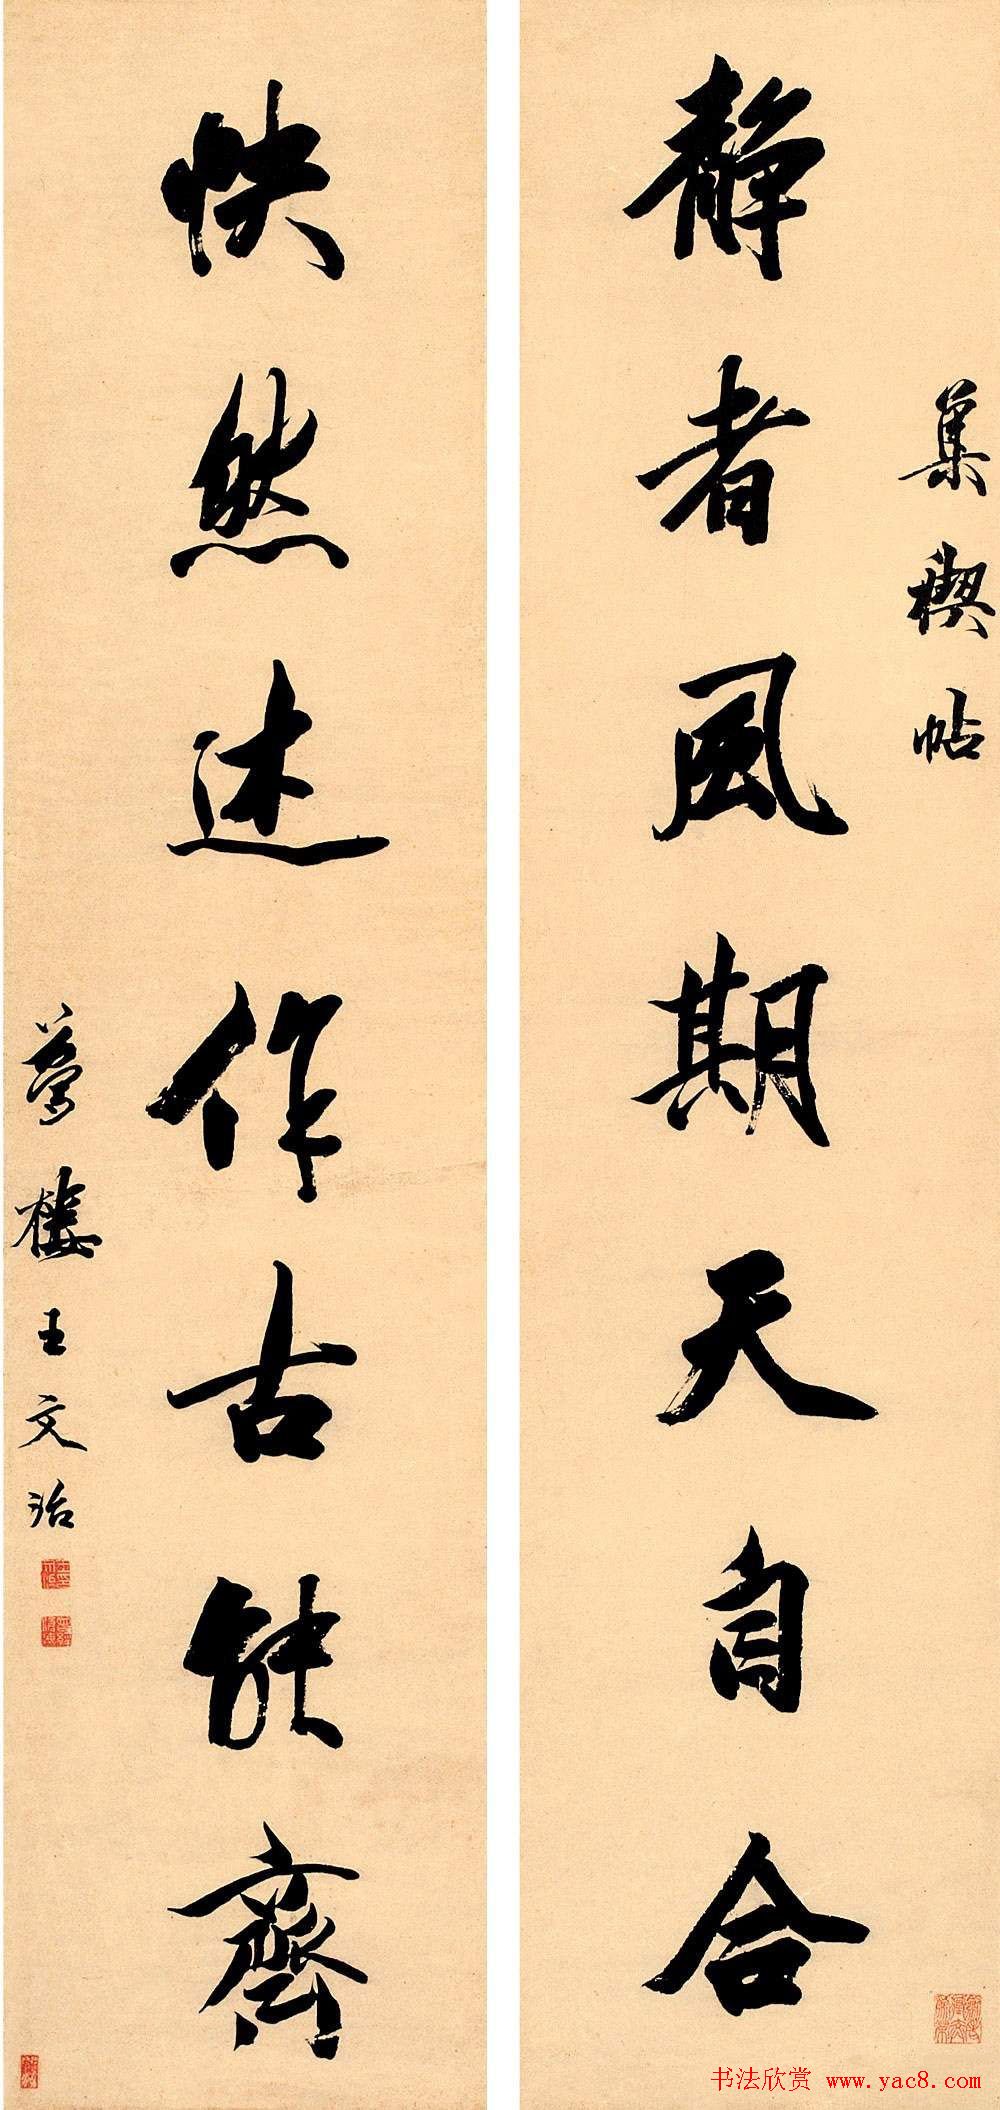 集禊帖
静者風期天自合
快然述作古能齊
夢樓王文治
书法欣赏 www.yac8.com